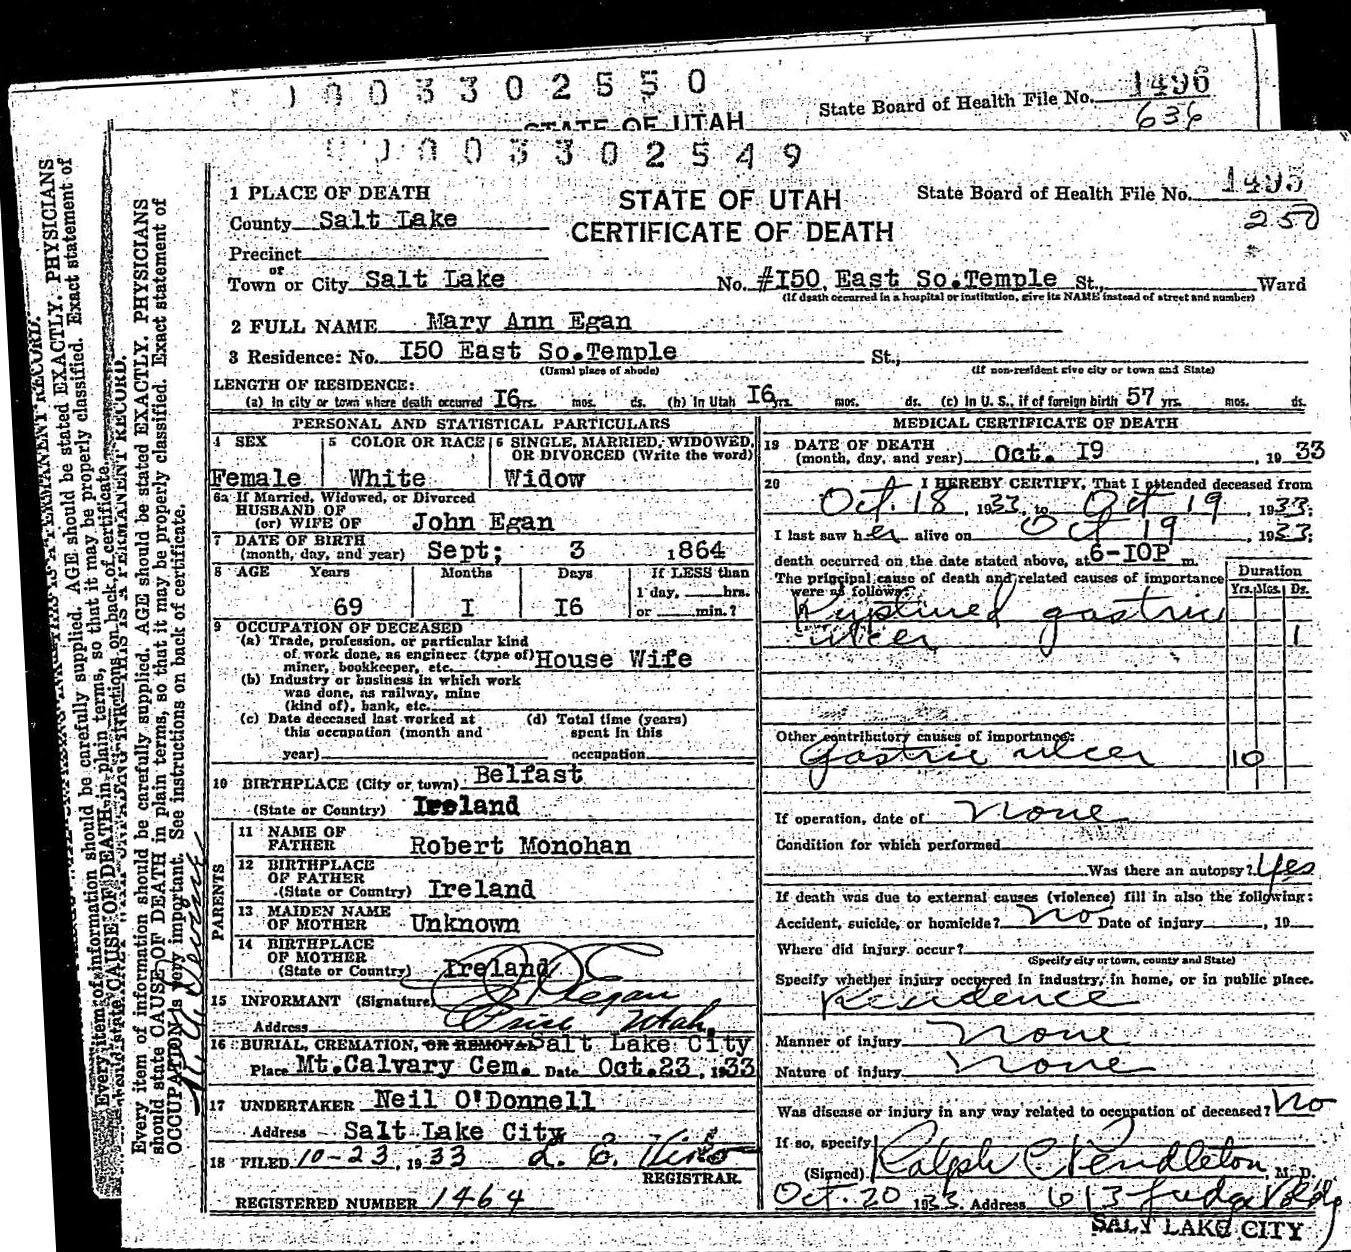 0 0 0 3 3 0 2 5 5 0
State Board of Health File No. 1496
STATE OF UTAH
636
0 0 0 3 3 0 2 5 4 9
1 PLACE OF DEATH
STATE OF UTAH
State Board of Health File No. 1495
County Salt Lake
CERTIFICATE OF DEATH
250
Precinct
or
Town or City Salt Lake No. #I50 East So.Temple St., Ward
(If death occurred in a hospital or institution, give its NAME instead of street and number)
2 FULL NAME Mary Ann Egan
3 Residence: No. I50 East So.Temple St.,
(Usual place of abode) (If non-resident give city or town and State)
LENGTH OF RESIDENCE:
(a) In city or town where death occurred I6 yrs. mos. ds. (b) In Utah I6 yrs. mos. ds. (c) In U. S., if of foreign birth 57 yrs. mos. ds.
PERSONAL AND STATISTICAL PARTICULARS
4 SEX 5 COLOR OR RACE 6 SINGLE, MARRIED, WIDOWED, OR DIVORCED (Write the word)
Female White Widow
6a If Married, Widowed, or Divorced
HUSBAND OF
(or) WIFE OF John Egan
7 DATE OF BIRTH
(month, day, and year) Sept; 3 , 1864
8 AGE Years Months Days If LESS than
1 day, hrs.
69 I I6 or min.?
9 OCCUPATION OF DECEASED
(a) Trade, profession, or particular kind
of work done, as engineer (type of)
miner, bookkeeper, etc. House Wife
(b) Industry or business in which work
was done, as railway, mine
(kind of), bank, etc.
(c) Date deceased last worked at (d) Total time (years)
this occupation (month and spent in this
year) occupation
10 BIRTHPLACE (City or town) Belfast
(State or Country) Ireland
PARENTS
11 NAME OF
FATHER Robert Monohan
12 BIRTHPLACE
OF FATHER
(State or Country) Ireland
13 MAIDEN NAME
OF MOTHER Unknown
14 BIRTHPLACE
OF MOTHER
(State or Country) Ireland
15 INFORMANT (Signature) Egan
Address Price Utah.
16 BURIAL, CREMATION, OR REMOVAL Salt Lake City
Place Mt.Calvary Cem. Date Oct.23 , 1933
17 UNDERTAKER Neil O'Donnell
Address Salt Lake City
18 FILED 10-23, 1933
REGISTRAR.
REGISTERED NUMBER 1464
MEDICAL CERTIFICATE OF DEATH
19 DATE OF DEATH
(month, day, and year) Oct. I9 , 19 33
20 I HEREBY CERTIFY, That I attended deceased from
Oct. 18 , 1933, to Oct 19 , 1933;
I last saw her alive on Oct 19 , 1933;
death occurred on the date stated above, at 6-IOP m.
The principal cause of death and related causes of importance
were as follows:
Duration
Yrs. Mos. Ds.
Ruptured gastric
ulcer 1
Other contributory causes of importance:
Gastric ulcer 10
If operation, date of None
Condition for which performed
Was there an autopsy? Yes
If death was due to external causes (violence) fill in also the following:
Accident, suicide, or homicide? No Date of injury , 19
Where did injury occur?
(Specify city or town, county and State)
Specify whether injury occurred in industry, in home, or in public place.
Residence
Manner of injury None
Nature of injury None
Was disease or injury in any way related to occupation of deceased? No
If so, specify
(Signed) Ralph C. Pendleton, M. D.
Oct. 20 1933 Address 613 Judge Bldg
SALT LAKE CITY
Every item of information should be carefully supplied. AGE should be stated EXACTLY. PHYSICIANS
should state CAUSE OF DEATH in plain terms, so that it may be properly classified. Exact statement of
OCCUPATION is very important. See instructions on back of certificate.